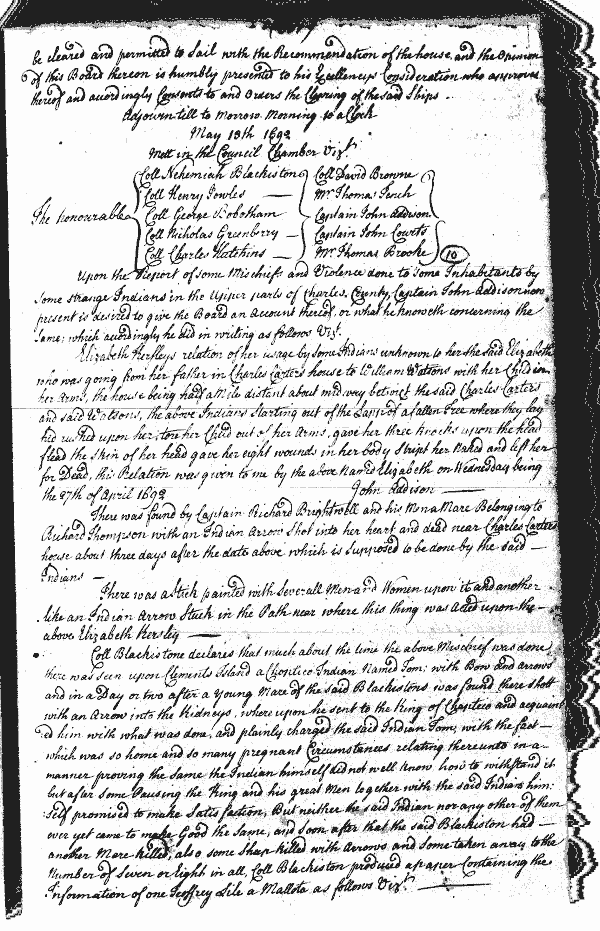 be cleared and permitted to Sail with the Recommendation of the house, and the Opinion
of this Board thereon is humbly presented to his Excellencys Consideration who approves
thereof and accordingly Consents to and Orders the Clearing of the said Ships.
Adjourn till to Morrow Morning 10 a Clock
May 18th 1692
Mett in the Council Chamber Vizt.
Coll Nehemiah Blackistone Coll David Browne
Coll Henry Jowles — Mr. Thomas Tench
The honourable Coll George Robotham Captain John Addison
Coll Nicholas Greenberry — Captain John Courts
Coll Charles Hutchins — Mr Thomas Brooke 10
Upon the Report of some Mischiefs and Violence done to some Inhabitants by
some strange Indians in the Upper parts of Charles County, Captain John Addison now
present is desired to give the Board an Account thereof, or what he knoweth concerning the
same; which accordingly he did in writing as follows Vizt.
Elizabeth Kersleys relation of her usage by some Indians unknown to her she said Elizabeth
who was going from her father in Charles Carters house to William Watsons with her Child in
her Arms, the house being half a Mile distant about midway betwixt the said Charles Carters
and said Watsons, the above Indians Starting out of the Lapp of a fallen Tree where they lay
hid rushed upon her, tore her Child out of her Arms, gave her three knocks upon the head
flead the skin of her head gave her eight wounds in her body Stript her Naked and left her
for Dead, this Relation was given to me by the above Named Elizabeth on Wednesday being
the 27th of April 1692 John Addison —
There was found by Captain Richard Brightwell and his Men a Mare Belonging to
Richard Thompson with an Indian Arrow Shot into her heart and dead near Charles Carters
house about three days after the date above which is supposed to be done by the said —
Indians —
There was a Stick painted with Severall Men and Women upon it and another
like an Indian Arrow Stuck in the Path near where this thing was Acted upon the —
above Elizabeth Kersley —
Coll Blackistone declares that much about the time the above Mischief was done,
there was seen upon Clements Island a Choptico Indian Named Tom; with Bow and arrows
and in a Day or two after a Young Mare of the said Blackistons was found there shott
with an Arrow into the Kidneys, where upon he sent to the King of Choptico and acquaint
ed him with what was done, and plainly charged the said Indian Tom, with the fact —
which was so home and so many pregnant Circumstances relating thereunto in a
manner proving the Same the Indian himself did not well know how to withstand it
but after some Pausing the King and his great Men together with the said Indian him:
self promised to make Satisfaction, But neither the said Indian nor any other of them
ever yet came to make Good the Same, and soon after that the said Blackiston had —
another Mare killed, also some Sheep killed with Arrows and Some taken away to the
Number of Seven or Eight in all, Coll Blackiston produced a paper Containing the
Information of one Jeoffrey Lile a Mallota as follows Vizt. —